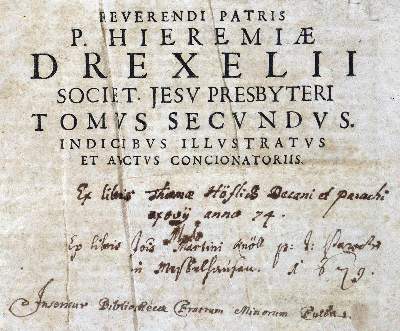 REVERENDI PATRIS
P. HIEREMIÆ
DREXELII
SOCIET. JESU PRESBYTERI
TOMUS SECVNDVS.
INDICIBVS ILLVSTRATVS
ET AVCTVS CONCIONATORIIS.
Ex libris Thomæ Höflich Decani et parochi
anno 74.
Ex libris Martini Knöll p: t:
in 1679.
Inseritur Bibliothecæ Fratrum Minorum Fuldæ